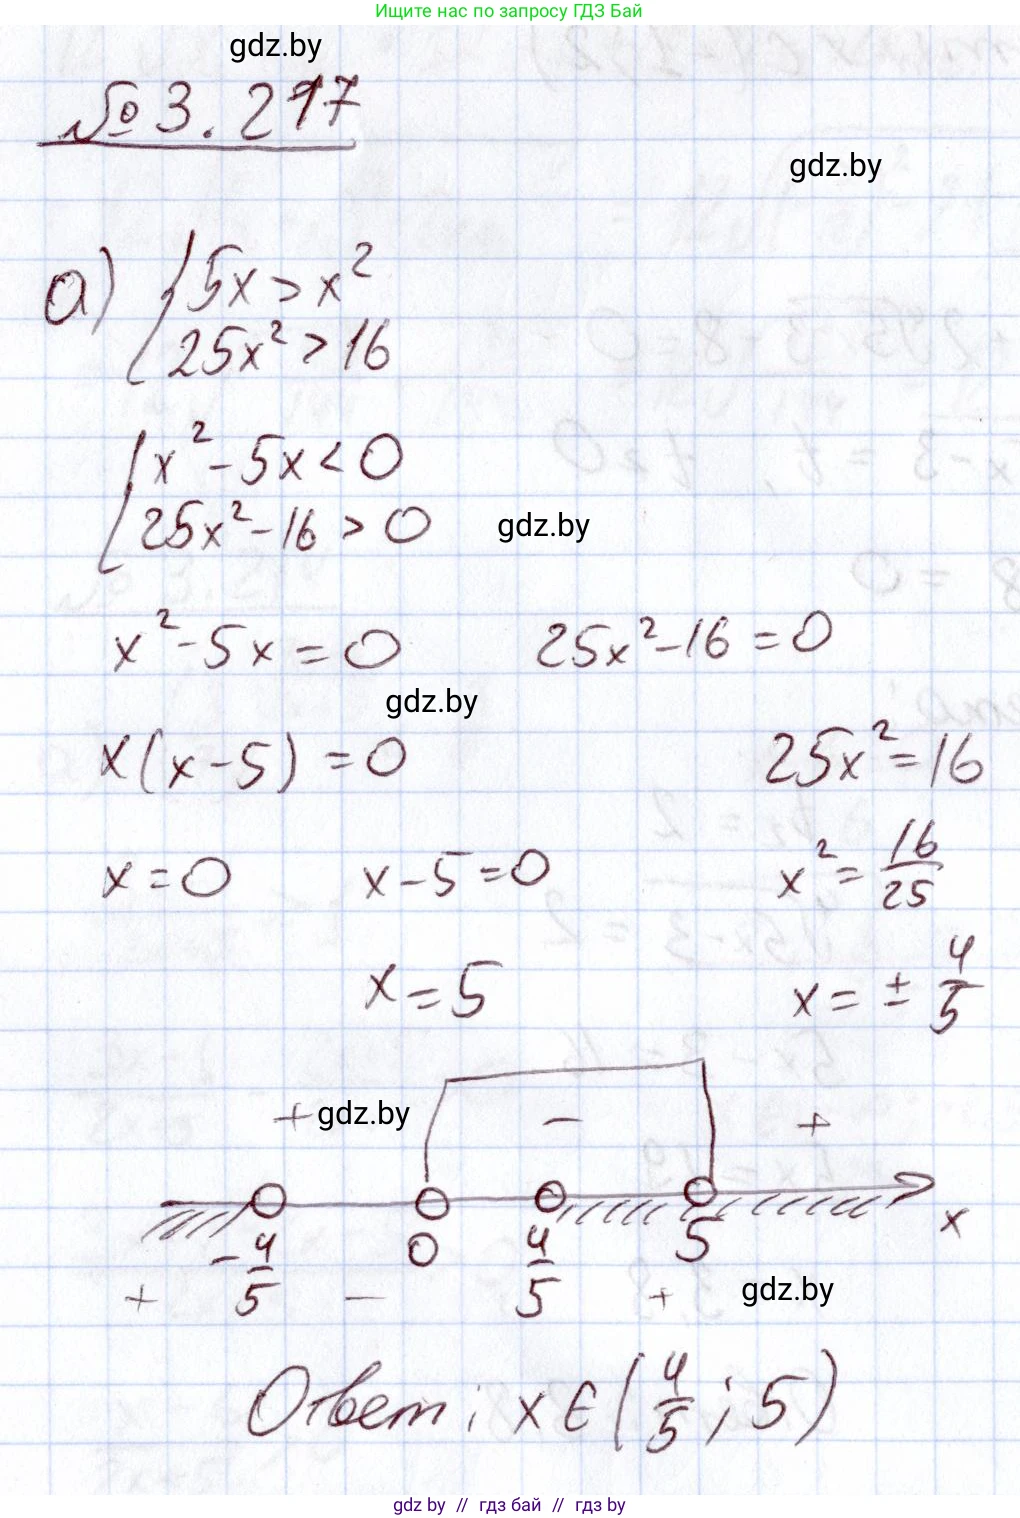 Ищите нас по запросу ГДЗ Бай
gdz.by
№ 3.217
gdz.by
а) { 5x > x²
25x² > 16
{ x² - 5x < 0
25x² - 16 > 0
gdz.by
x² - 5x = 0 25x² - 16 = 0
gdz.by
x(x - 5) = 0 25x² = 16
x = 0 x - 5 = 0 x² = 16/25
x = 5 x = ± 4/5
+ gdz.by - +
-4/5 0 4/5 5 x
+ - + gdz.by
Ответ: x ∈ (4/5; 5)
gdz by // гдз бай // гдз by